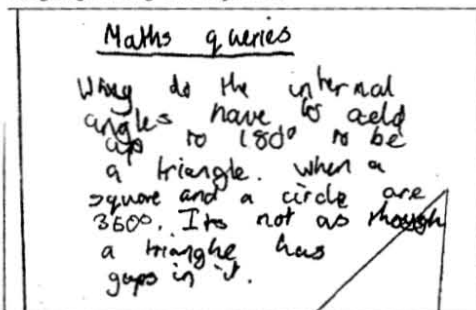 Maths queries
Whay do the internal
angles have to add
up to 180° to be
a triangle. When a
square and a circle are
360°. Its not as though
a trianghe has
gaps in it.